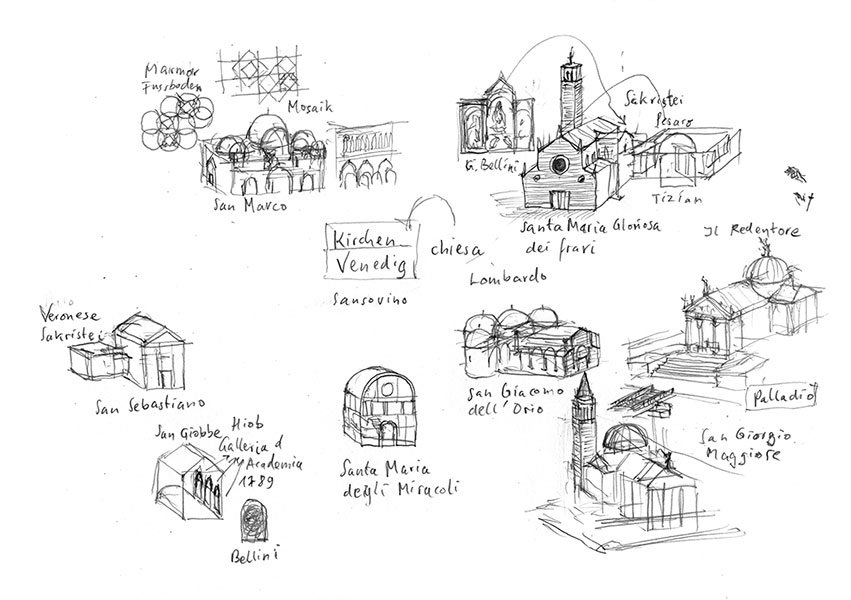 Marmor
Fussboden
Mosaik
San Marco
G. Bellini
Sakristei
Pesaro
Tizian
Santa Maria Gloriosa
dei frari
Il Redentore
Kirchen
Venedig
chiesa
Lombardo
Sansovino
Veronese
Sakristei
San Sebastiano
San Giacomo
dell'Orio
Palladio
San Giorgio
Maggiore
San Giobbe
Hiob
Galleria d
Academia
1789
Bellini
Santa Maria
degli Miracoli